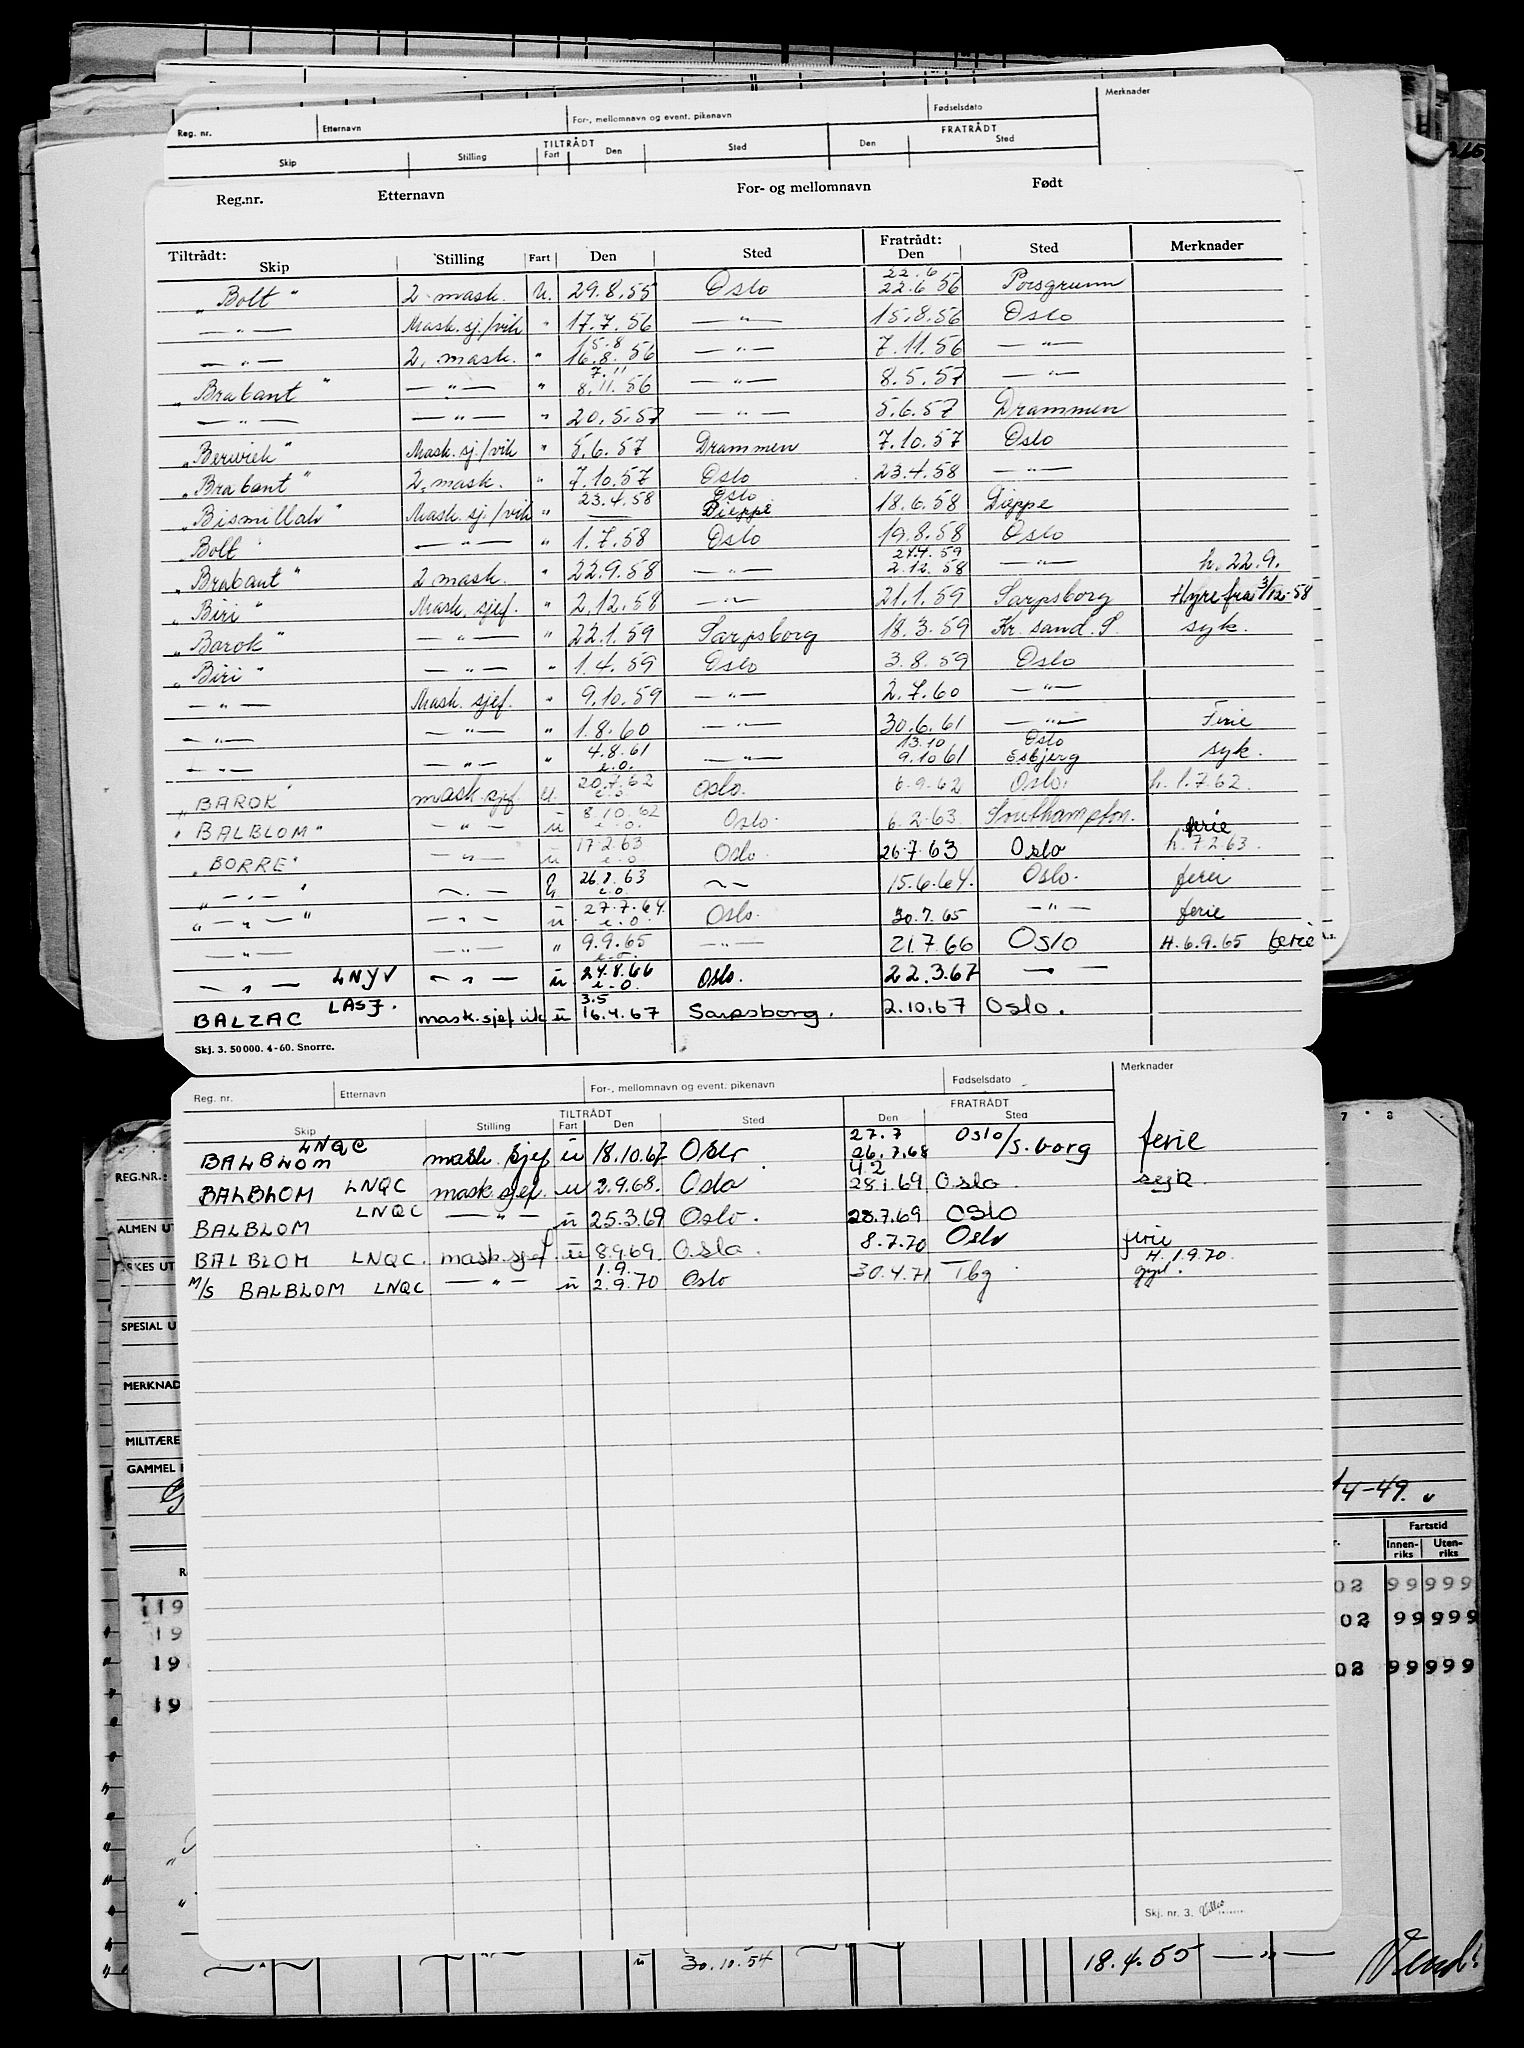 Reg. nr. Etternavn For-, mellomnavn og event. pikenavn Fødselsdato Merknader
TILTRÅDT FRATRÅDT
Skip Stilling Fart Den Sted Den Sted
Reg.nr. Etternavn For- og mellomnavn Født
Tiltrådt: Fratrådt:
Skip Stilling Fart Den Sted Den Sted Merknader
22.6
„Bolt" 2. mask. U. 29.8.55 Oslo 22.6 56 Porsgrunn
— " — Mask. sj./vik " 17.7.56 — " — 15.8.56 Oslo
15.8
— " — 2. mask. " 16.8.56 — " — 7.11.56 — " —
7.11
„Brabant" — " — " 8.11.56 — " — 8.5.57 — " —
— " — — " — " 20.5.57 — " — 5.6.57 Drammen
„Berwick" Mask. sj./vik " 5.6.57 Drammen 7.10.57 Oslo
„Brabant" 2. mask. " 7.10.57 Oslo 23.4.58 — " —
23.4.58 Oslo
„Bismillah" Mask. sj./vik " — Dieppe 18.6.58 Dieppe
„Bolt" — " — " 1.7.58 Oslo 19.8.58 Oslo
„Brabant" 2 mask. " 22.9.58 — " — 2.12.58 — " — h. 22.9.
„Biri" Mask. sjef. " 2.12.58 — " — 21.1.59 Sarpsborg Hyre fra 3/12-58
„Barok" — " — " 22.1.59 Sarpsborg 18.3.59 Kr. sand. S. syk.
„Biri" — " — " 1.4.59 Oslo 3.8.59 Oslo
— " — Mask. sjef. " 9.10.59 — " — 2.7.60 — " —
— " — — " — " 1.8.60 — " — 30.6.61 — " — Ferie
13.10 Oslo
— " — — " — " 4.8.61 e.o. — " — 9.10 61 Esbjerg syk.
„BAROK" mask. sjef. U. 20.7.62 Oslo. 6.9.62 Oslo. h. 1.7.62.
"BALBLOM" — " — ü 8.10.62 e.o. Oslo. 6.2.63. Southampton. ferie
„BORRE" — " — ü 17.2.63 e.o. Oslo. 26.7.63 Oslo h. 7.2.63.
„ — " — " — " — 26.8.63 e.o. — " — 15.6.64. Oslo. ferie
" — " — " — " — ü 27.7.64. e.o. Oslo. 30.7.65 — " — ferie
— " — — " — " 9.9.65 e.o. — " — 21.7 66 Oslo H. 6.9.65 ferie
— " — LNYV — " — ü 24.8.66 e.o. Oslo. 22.3.67 — " —
3.5
BALZAC LASJ. mask. sjef vik ü 16.4.67 Sarpsborg. 2.10.67 Oslo.
Skj. 3. 50 000. 4-60. Snorre.
Reg. nr. Etternavn For-, mellomnavn og event. pikenavn Fødselsdato Merknader
TILTRÅDT FRATRÅDT
Skip Stilling Fart Den Sted Den Sted
LNQC 27.7 Oslo
BALBLOM mask. sjef ü 18.10.67 Oslo. 26.7.68 /S.borg ferie
4 2
BALBLOM LNQC mask sjef. u 2.9.68. Oslo 28.1.69 Oslo. syk.
BALBLOM LNQC — " — ü 25.3.69 Oslo. 28.7.69 OSLO
BALBLOM LNQC. mask. sjef. ü 8.9.69. Oslo. 8.7.70 Oslo ferie
1.9. H. 1.9.70.
M/S BALBLOM LNQC — " — ü 2.9.70 Oslo 30.4.71 Tbg
Skj. nr. 3.
7 8
REG.NR.:
ALMEN UT
SPESIAL U
MERKNAD
MILITÆRE
GAMMEL
4-49.
Fartstid
Innen-riks Uten-riks
02 99 999
02 99 999
02 99 999
19
19
19
19
— " — ü 30.10.54 18.4.55 — " — Vend!